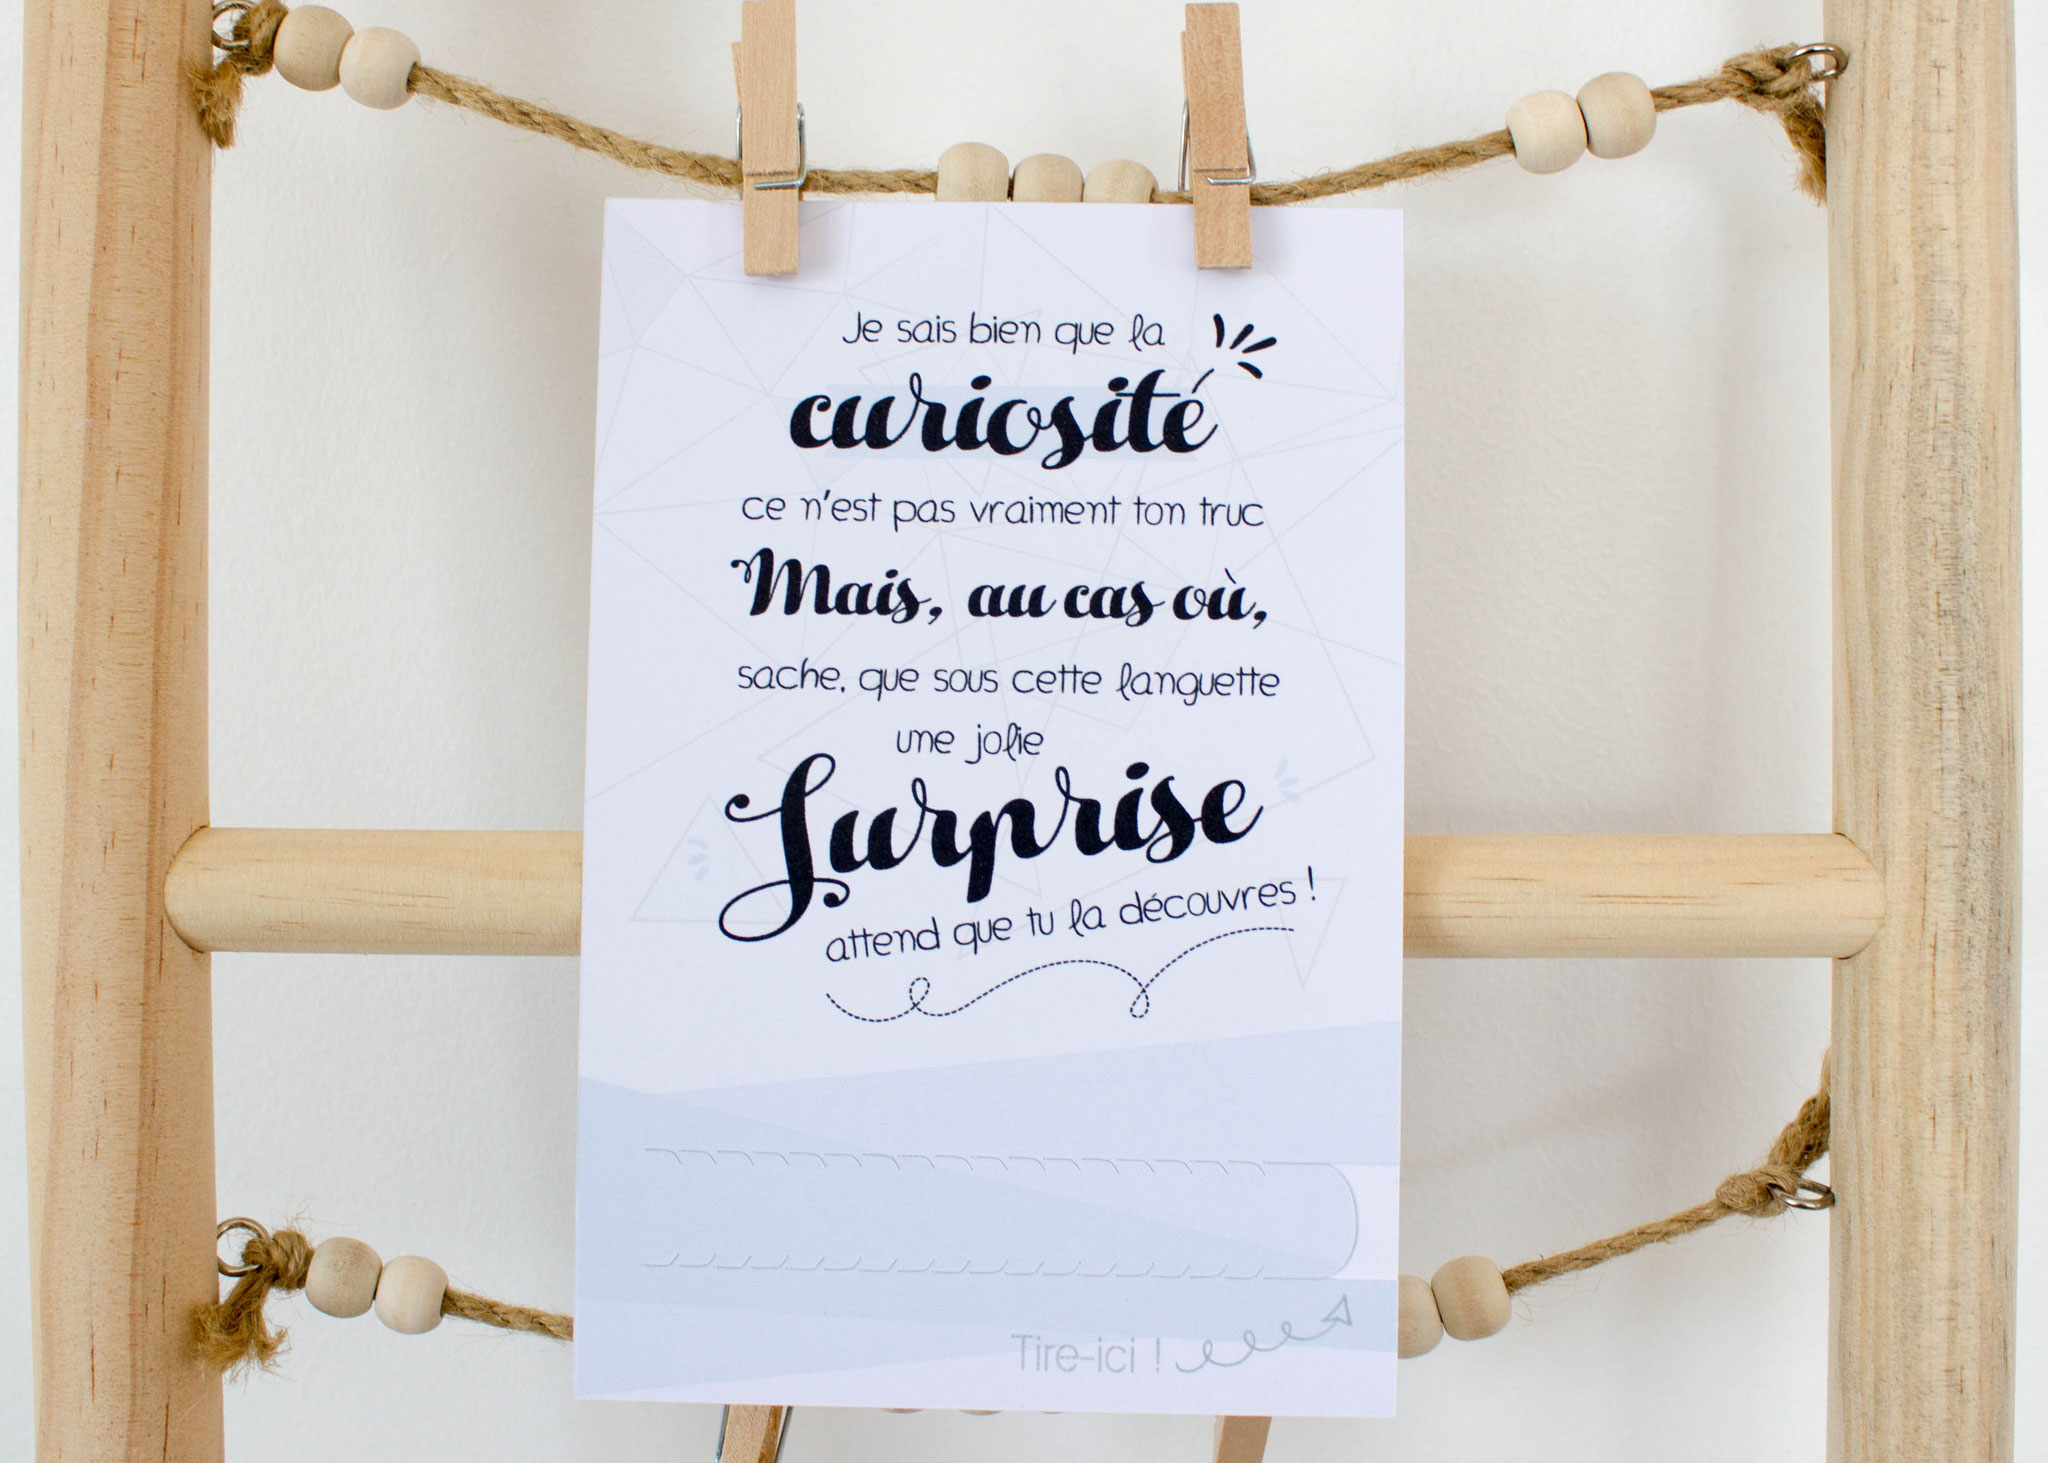 Je sais bien que la
curiosité
ce n'est pas vraiment ton truc
Mais, au cas où,
sache, que sous cette languette
une jolie
Surprise
attend que tu la découvres !
Tire-ici !